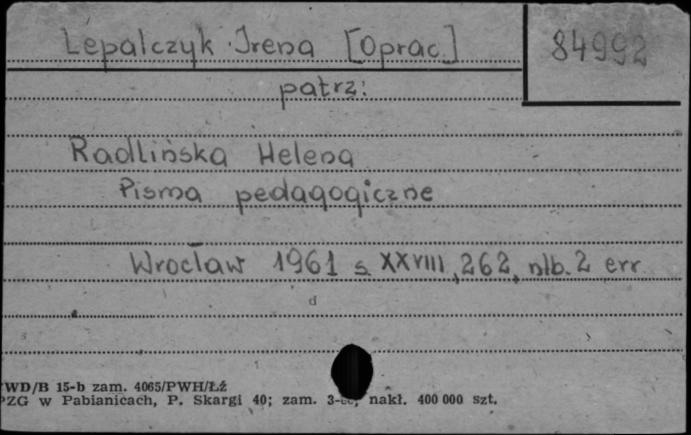 Lepalczyk Irena [Oprac.] 84992
patrz:
Radlińska Helena
Pisma pedagogiczne
Wrocław 1961 s. XXVIII, 262, nlb. 2 err
d
WD/B 15-b zam. 4065/PWH/Łź
PZG w Pabianicach, P. Skargi 40; zam. nakł. 400 000 szt.